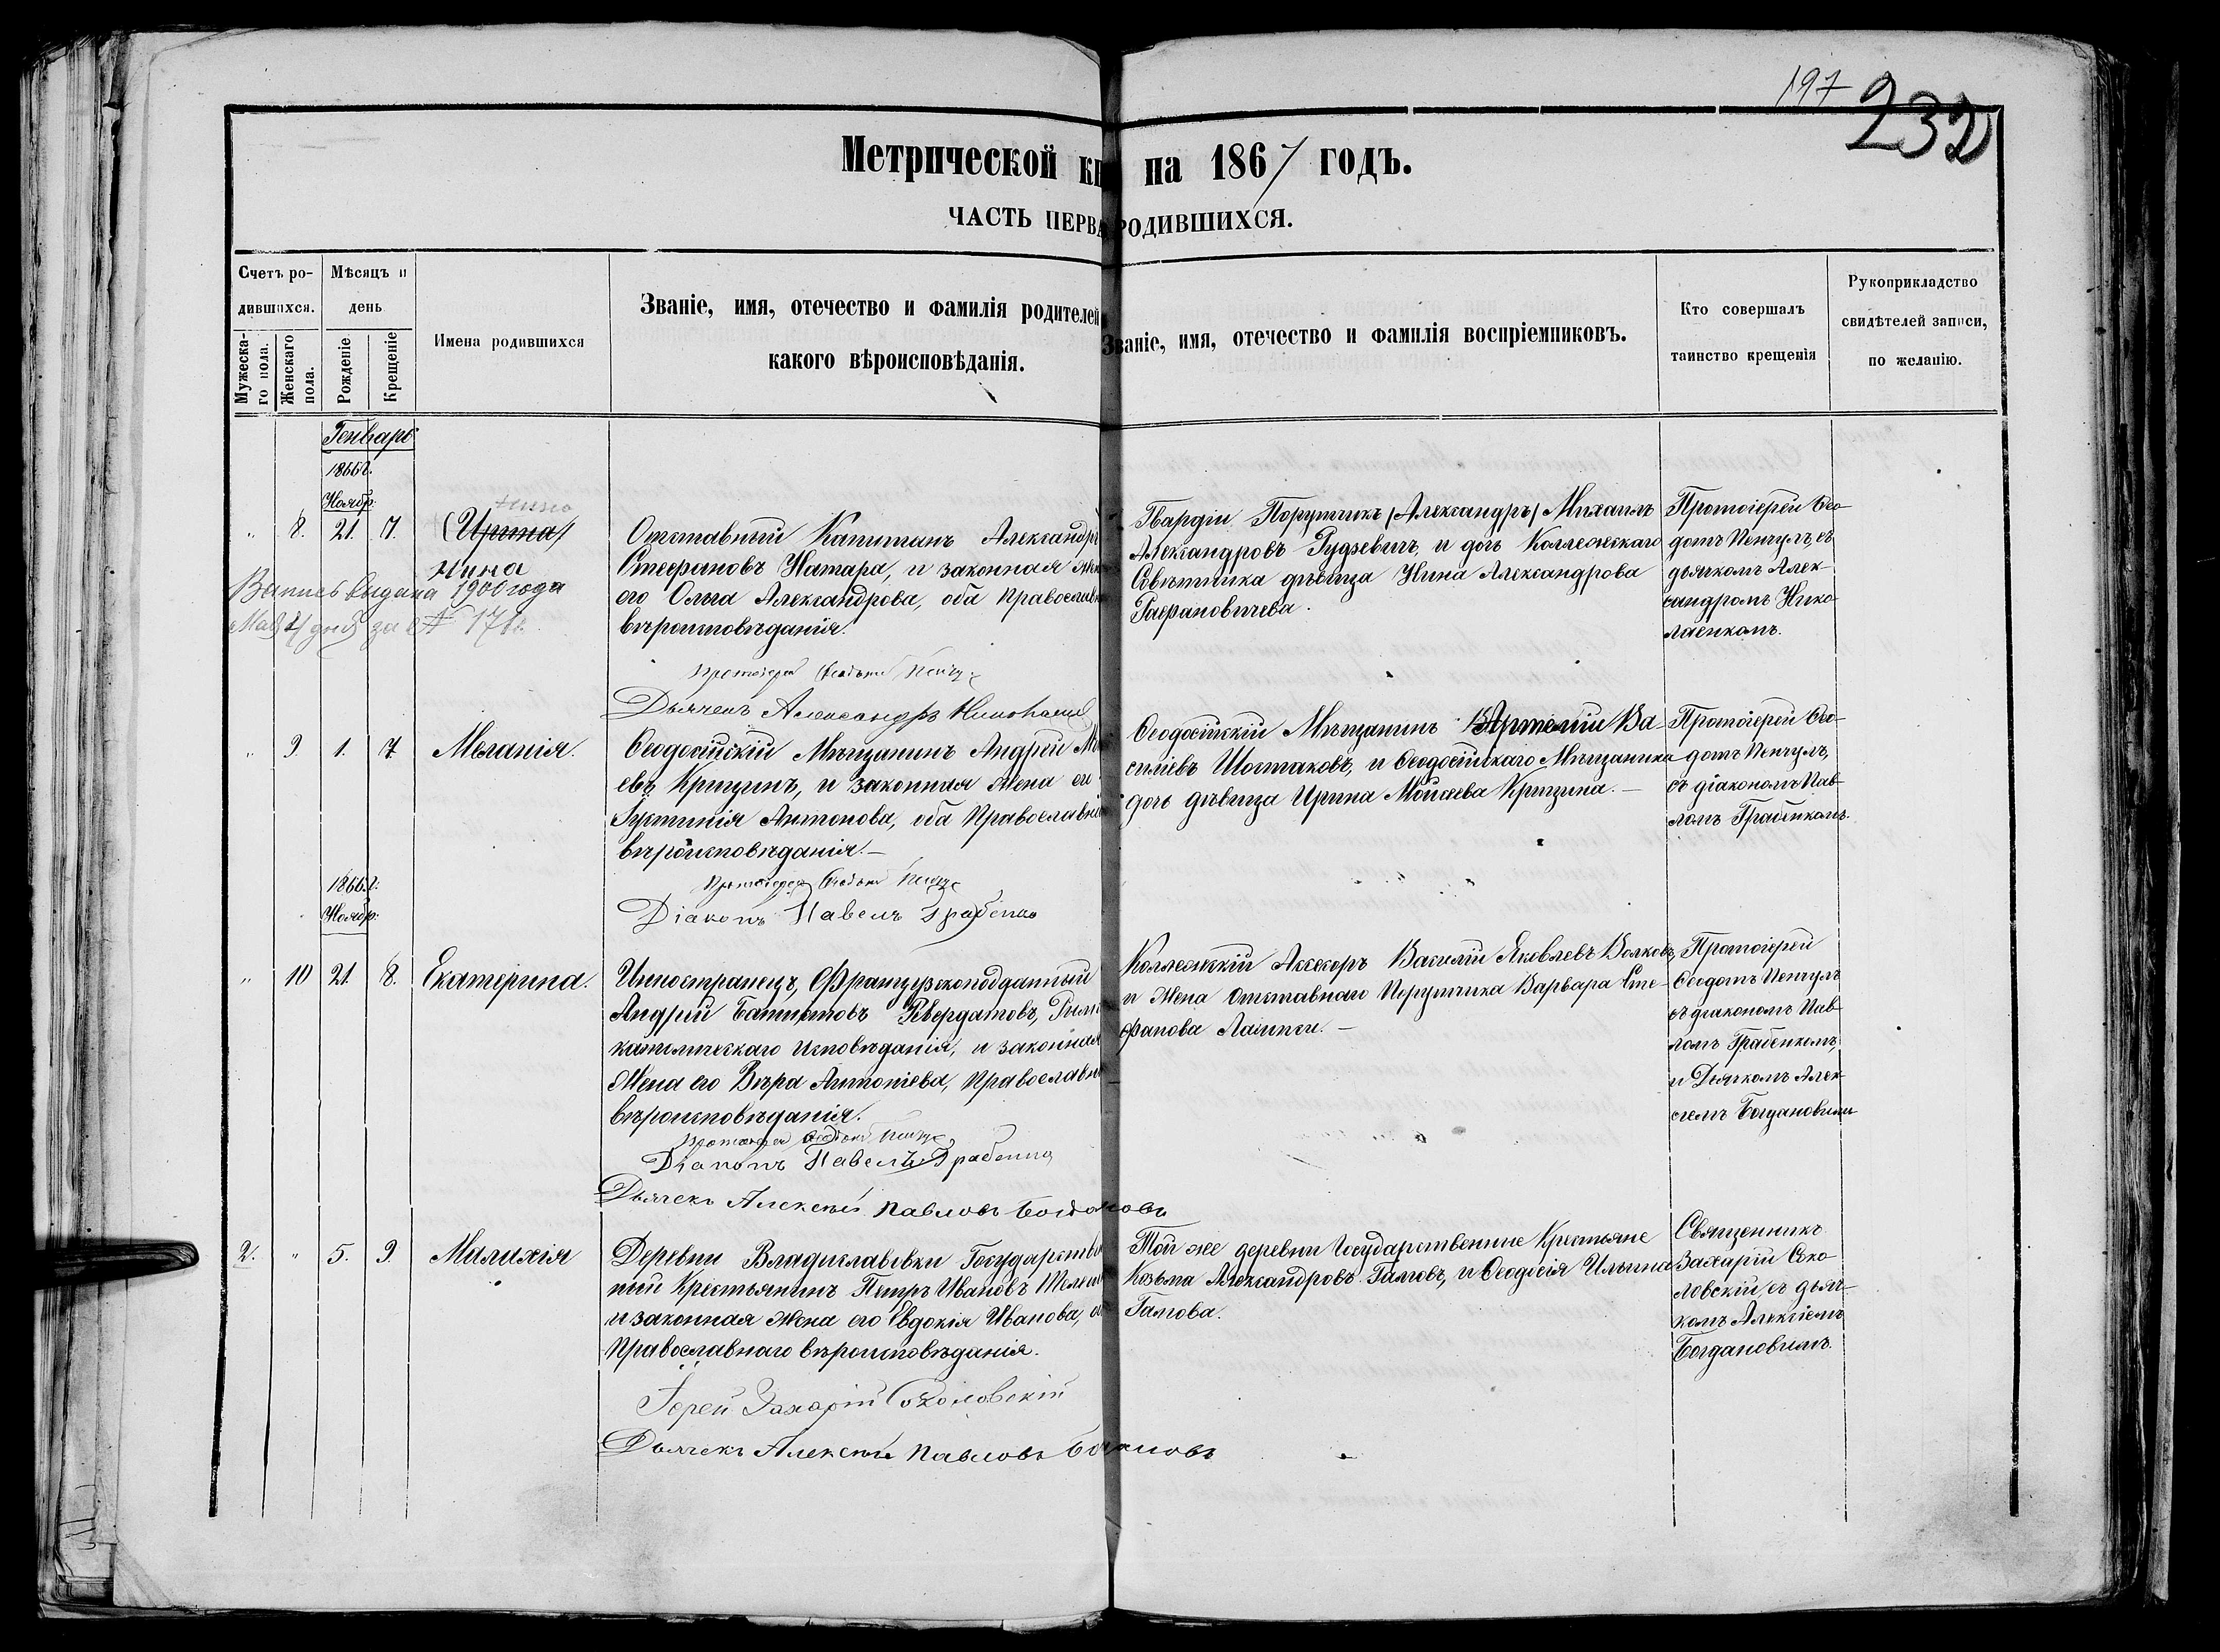 197
232
Метрической кн на 1867 годъ.
ЧАСТЬ ПЕРВА РОДИВШИХСЯ.
Счетъ ро-
дившихся.
Мужеска-
го пола.
Женскаго
пола.
Мѣсяцъ и
день
Рожденіе
Крещеніе
Имена родившихся
Званіе, имя, отечество и фамилія родителей
какого вѣроисповѣданія.
Званіе, имя, отечество и фамилія воспріемниковъ.
Кто совершалъ
таинство крещенія
Рукоприкладство
свидѣтелей записи,
по желанію.
Генварь
1866 г.
Ноябр.
" 8. 21. 7. (Ирина)
Нина
Запись выдана 1900 года
Мая дня за №
Отставный Капитанъ Александръ
Стефановъ Натара, и законная
его Ольга Александрова, оба Православн
вѣроисповѣданія.
Протоіерей Ѳеодотъ Пенчулъ
Дьячекъ Александръ
Гвардіи Порутчикъ (Александръ) Михаилъ
Александровъ Рудзевичъ, и дочь Коллежскаго
Совѣтника дѣвица Нина Александрова
Рафановичева.
Протоіерей Ѳео-
дотъ Пенчулъ, съ
дьячкомъ Алек-
сандромъ Нико-
лаенкомъ.
" 9. 1. 7. Меланія.
Ѳеодосійскій Мѣщанинъ Андрей М
евъ Крицинъ, и законная Жена его
Іустинія Антонова, оба Православн
вѣроисповѣданія.—
Протоіерей Ѳеодотъ Пенчулъ
Діаконъ Павелъ Грабенко
Ѳеодосійскій Мѣщанинъ Артемій Ва-
силіевъ Шостаковъ, и Ѳеодосійскаго Мѣщанина
дочь дѣвица Ирина Моисеева Крицина.—
Протоіерей Ѳео-
дотъ Пенчулъ,
съ діакономъ Пав-
ломъ Грабенкомъ.
1866 г.
Ноябр:
" 10 21. 8. Екатерина.
Инностранецъ, Французскоподданный
Андрей Батистовъ Ревердатовъ, Римс
католическаго Исповѣданія, и законная
Жена его Вѣра Антоніева, Православн
вѣроисповѣданія.
Протоіерей Ѳеодотъ Пенчулъ
Діаконъ Павелъ Грабенко
Дьячекъ Алексѣй Павловъ Богдановъ
Коллежскій Ассесоръ Василій Яковлевъ Волковъ,
и Жена Отставнаго Порутчика Варвара Сте-
фанова Лашки.—
Протоіерей
Ѳеодотъ Пенчулъ
съ діакономъ Пав-
ломъ Грабенкомъ,
и Дьячкомъ Алек-
сѣемъ Богдановымъ
2. " 5. 9. Малахія
Деревни Владиславовки Государствен
ный Крестьянинъ Петръ Ивановъ
и законная Жена его Евдокія Иванова, о
Православнаго вѣроисповѣданія.
Іерей Захарій Соколовскій
Дьячекъ Алексѣй Павловъ Богдановъ
Той же деревни Государственные Крестьяне
Козьма Александровъ Гамовъ, и Ѳеодосія Ильина
Гамова.
Священникъ
Захарій Соко-
ловскій, съ дьяч-
комъ Алексіемъ
Богдановымъ.